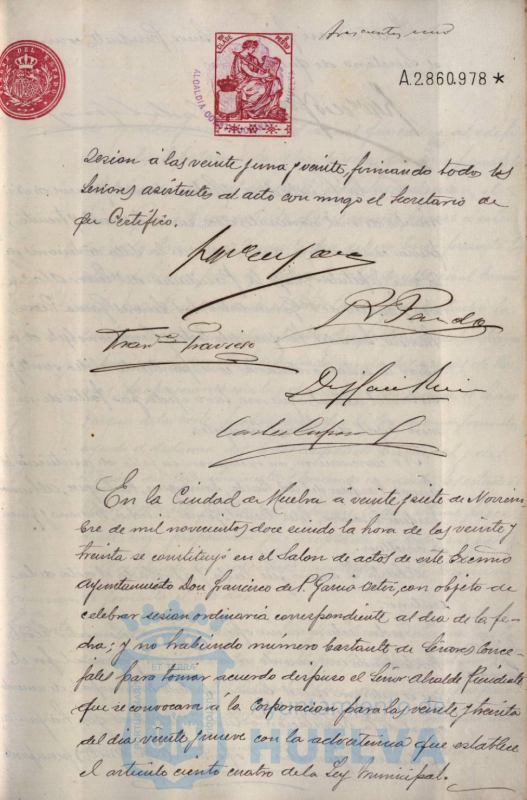 Trescientos uno
A.2.860.978 *
CLASE
DEL ESTADO
ALCALDIA
Sesion á las veinte y una y veinte, firmando todos los
Señores asistentes al acto con migo el Secretario de
que Certifico.
R. Pando
Fran.co Travieso
En la Ciudad de Huelva á veinte y siete de Noviem-
bre de mil novecientos doce siendo la hora de las veinte y
treinta se constituyó en el Salon de actos de este Excmo
Ayuntamiento Don Francisco de P. García Ortiz, con objeto de
celebrar sesion ordinaria correspondiente al dia de la fe-
cha; y no habiendo número bastante de Señores Conce-
jales para tomar acuerdo dispuso el Señor Alcalde Presidente
que se convocara á la Corporacion para las veinte y treinta
del dia veinte y nueve con la advertencia que establece
el articulo ciento cuatro de la Ley Municipal.
HUELVA